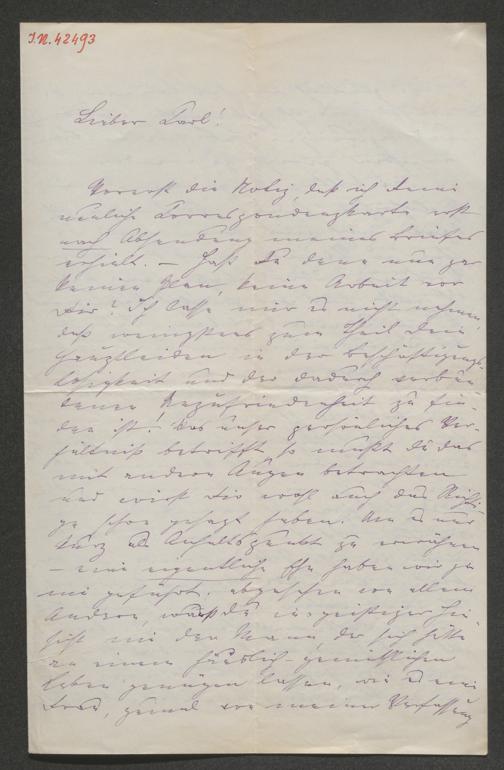 J.N. 42493
Lieber Carl!
Vorerst die Notiz, daß ich Deine
neuliche Correspondenzkarte erst
nach Absendung meines Briefes
erhielt. – Hast Du denn nun gar
keinen Plan, keine Arbeit vor
Dir? Ich lasse mir es nicht nehmen,
daß wenigstens zum Theil Dein
Hauptleiden in der Beschäftigungs-
losigkeit und der dadurch verbun-
denen Unzufriedenheit zu fin-
den ist! Was unser persönliches Ver-
hältniß betrifft, so mußt du das
mit andern Augen betrachten
und wirst Dir wohl auch das Richti-
ge schon gesagt haben. Um es nur
kurz als Anhaltspunkt zu erwähnen
– eine eigentliche Ehe haben wir ja
nie geführt. abgesehen von allem
Andern, warst du in geistiger Hin-
sicht nie der Mann, der sich hätte
an einem häuslich-gemüthlichen
Leben genügen lassen, wie es eine
Frau, zumal von meiner Verfassung